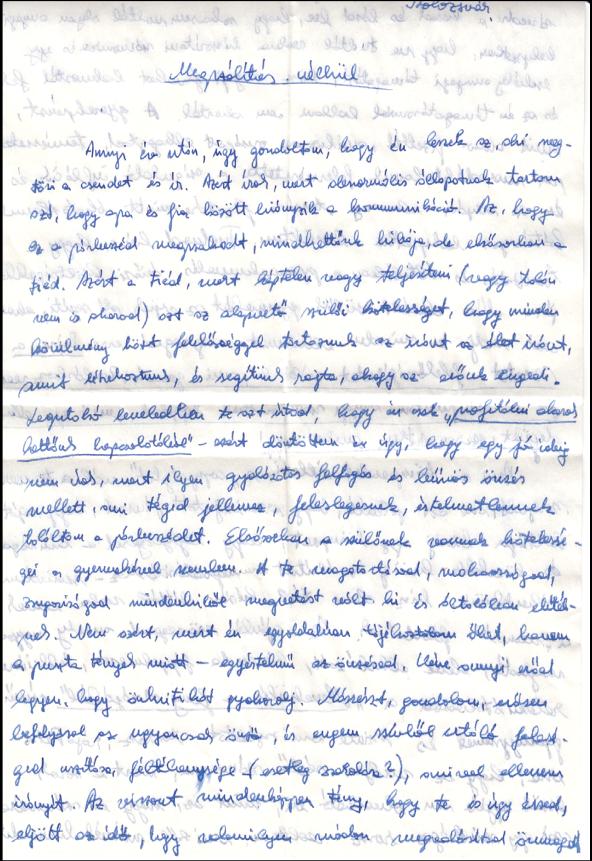 Kolozsvár
Megszólítás nélkül
Annyi év után, úgy gondoltam, hogy én leszek az, aki meg-
töri a csendet és ír. Azért írok, mert abnormális állapotnak tartom
azt, hogy apa és fia között hiányzik a kommunikáció. Az, hogy
ez a párbeszéd megszakadt, mindkettőnk hibája, de elsősorban a
Tiéd. Azért a Tiéd, mert képtelen vagy teljesíteni (vagy talán
nem is akarod) azt az alapvető szülői kötelességet, hogy minden
körülmény között felelősséggel tartozunk az iránt az élet iránt,
amit létrehoztunk, és segítünk rajta, ahogy az erőnk engedi.
Legutolsó leveledben Te azt írtad, hogy én csak "profitálni akarok
kettőnk kapcsolatából" - ezért döntöttem én úgy, hogy egy jó ideig
nem írok, mert ilyen gyalázatos felfogás és önzés
mellett, ami Téged jellemez, feleslegesnek, értelmetlennek
találtam a párbeszédet. Elsősorban a szülőnek vannak kötelessé-
gei a gyermekével szemben. A Te magatartásod, makacsságod,
zsugoriságod mindenkiből megvetést vált ki és általában elítél-
nek. Nem azért, mert én egyoldalúan tájékoztatom őket, hanem
a puszta tények miatt - egyértelmű az önzésed. Kéne annyi erőd
legyen, hogy önkritikát gyakorolj. Másrészt, gondolom, erősen
befolyásol az ugyancsak önző, és engem szívből utáló feleség-
ged uszítása, féltékenysége (esetleg zsarolása?), amivel ellenem
irányít. Az viszont mindenképpen tény, hogy te is úgy érzed,
eljött az idő, hogy valamilyen módon megváltsd önmagad